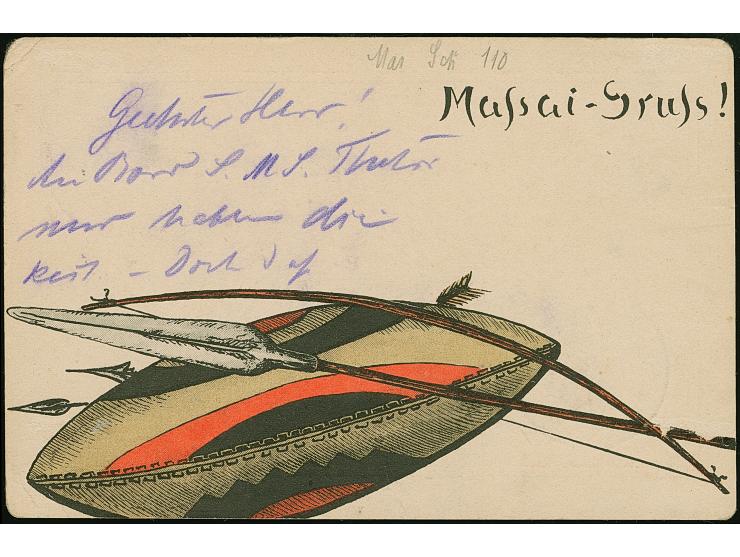 Mas Sch 110
Massai-Gruss!
Geehrter Herr!
An Bord S.M.S. Thetis
nur haben die
Zeit - Doch